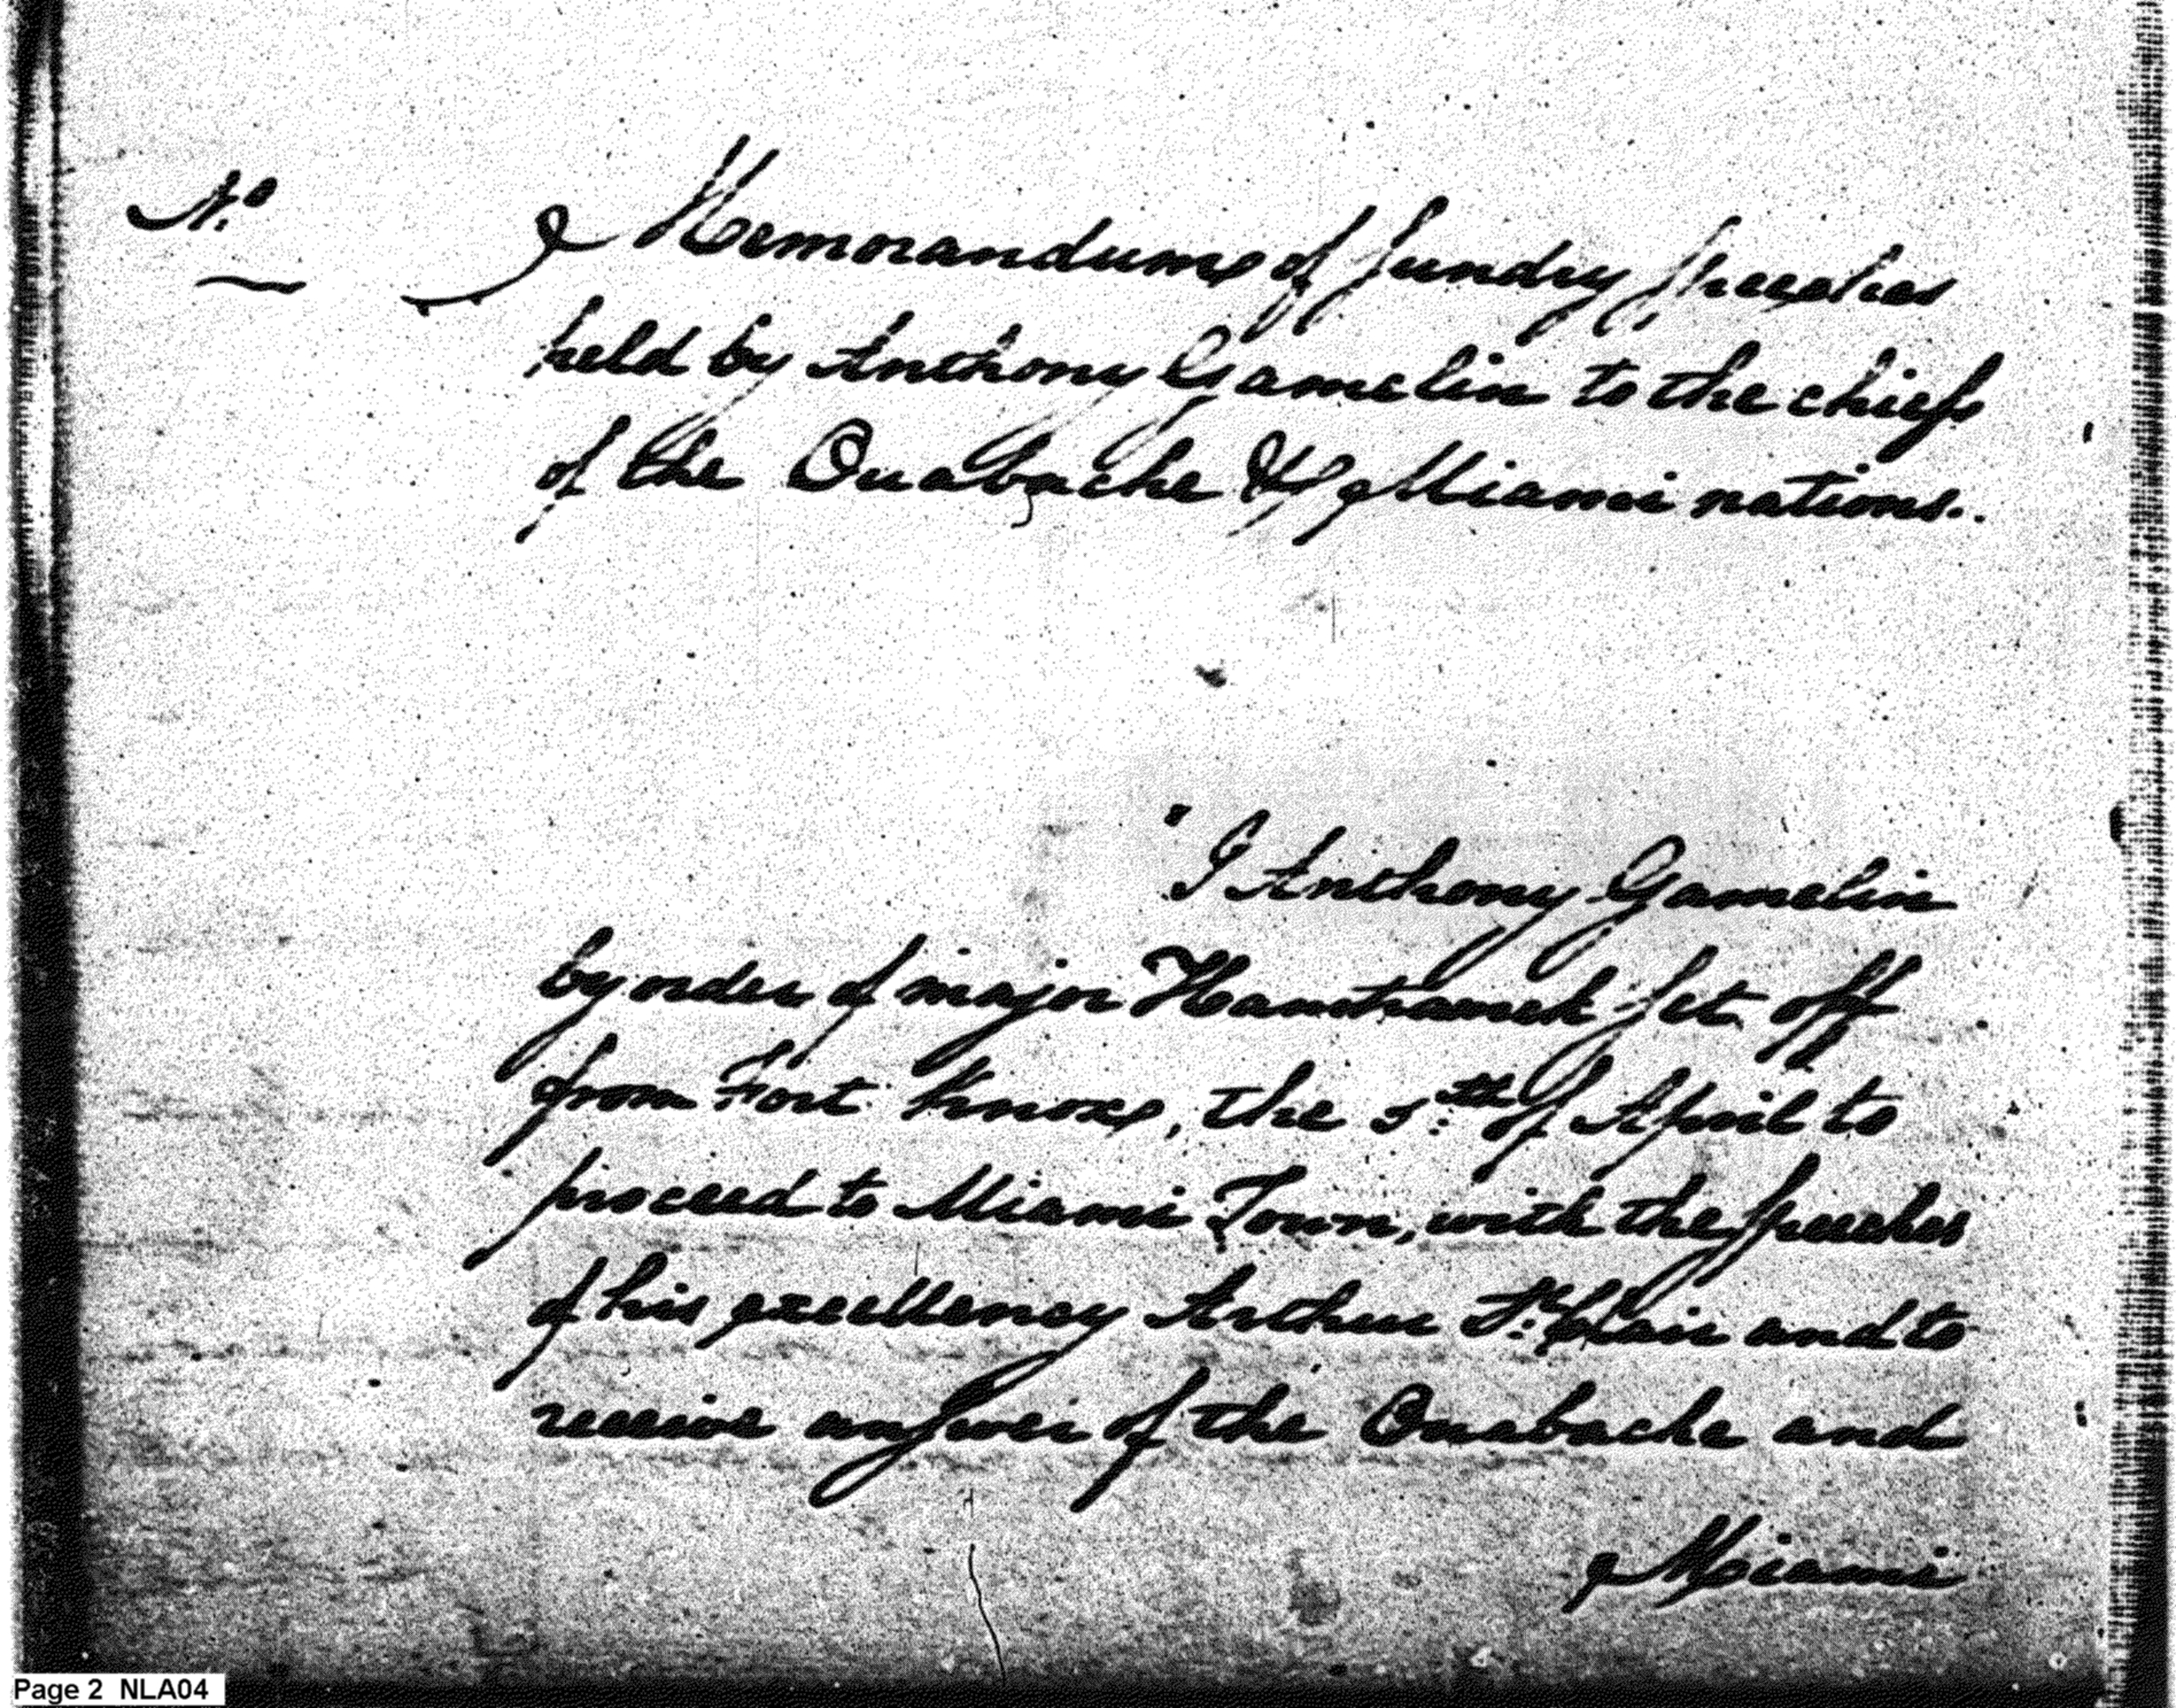 No
Memorandums of sundry speeches
held by Anthony Gamelin to the chiefs
of the Ouabache & Miami nations.
"I Anthony Gamelin
by order of major Hamtramck set off
from Fort Knox, the 5th of April to
proceed to Miami Town, with the speeches
of his excellency Arthur St. Clair and to
receive answer of the Ouabache and
Miami
Page 2 NLA04